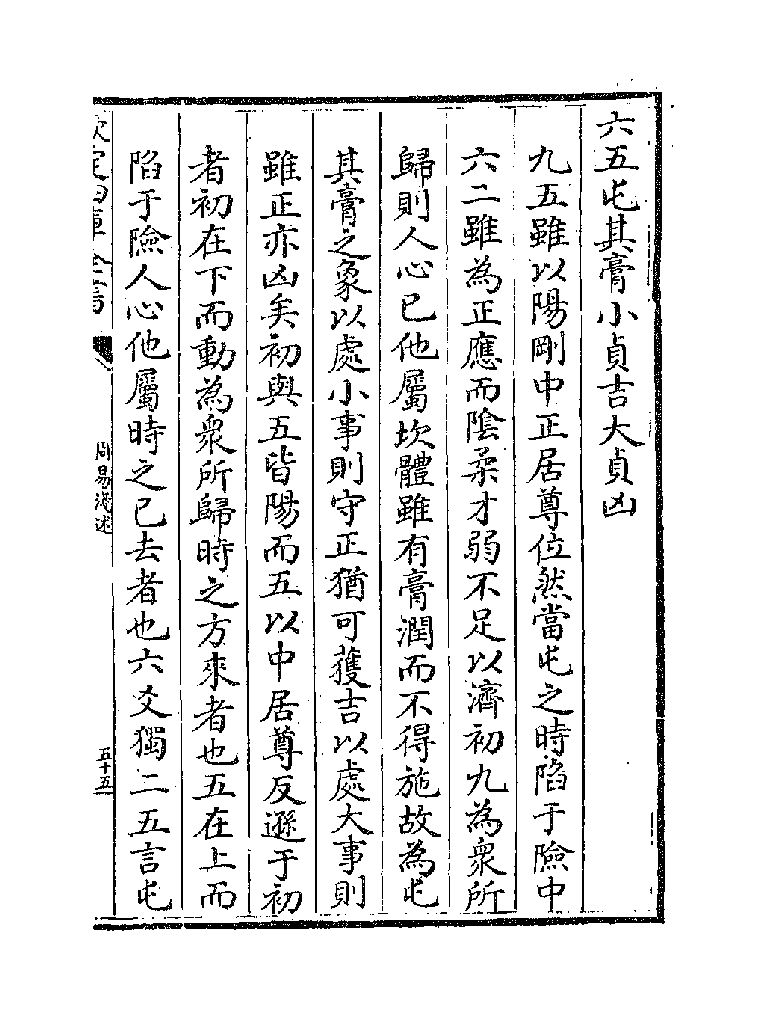 六五屯其膏小貞吉大貞凶
九五雖以陽剛中正居尊位然當屯之時陷于險中
六二雖為正應而陰柔才弱不足以濟初九為衆所
歸則人心已他屬坎體雖有膏潤而不得施故為屯
其膏之象以處小事則守正猶可獲吉以處大事則
雖正亦凶矣初與五皆陽而五以中居尊反遜于初
者初在下而動為衆所歸時之方來者也五在上而
陷于險人心他屬時之已去者也六爻獨二五言屯
欽定四庫全書
周易淺述
五十五